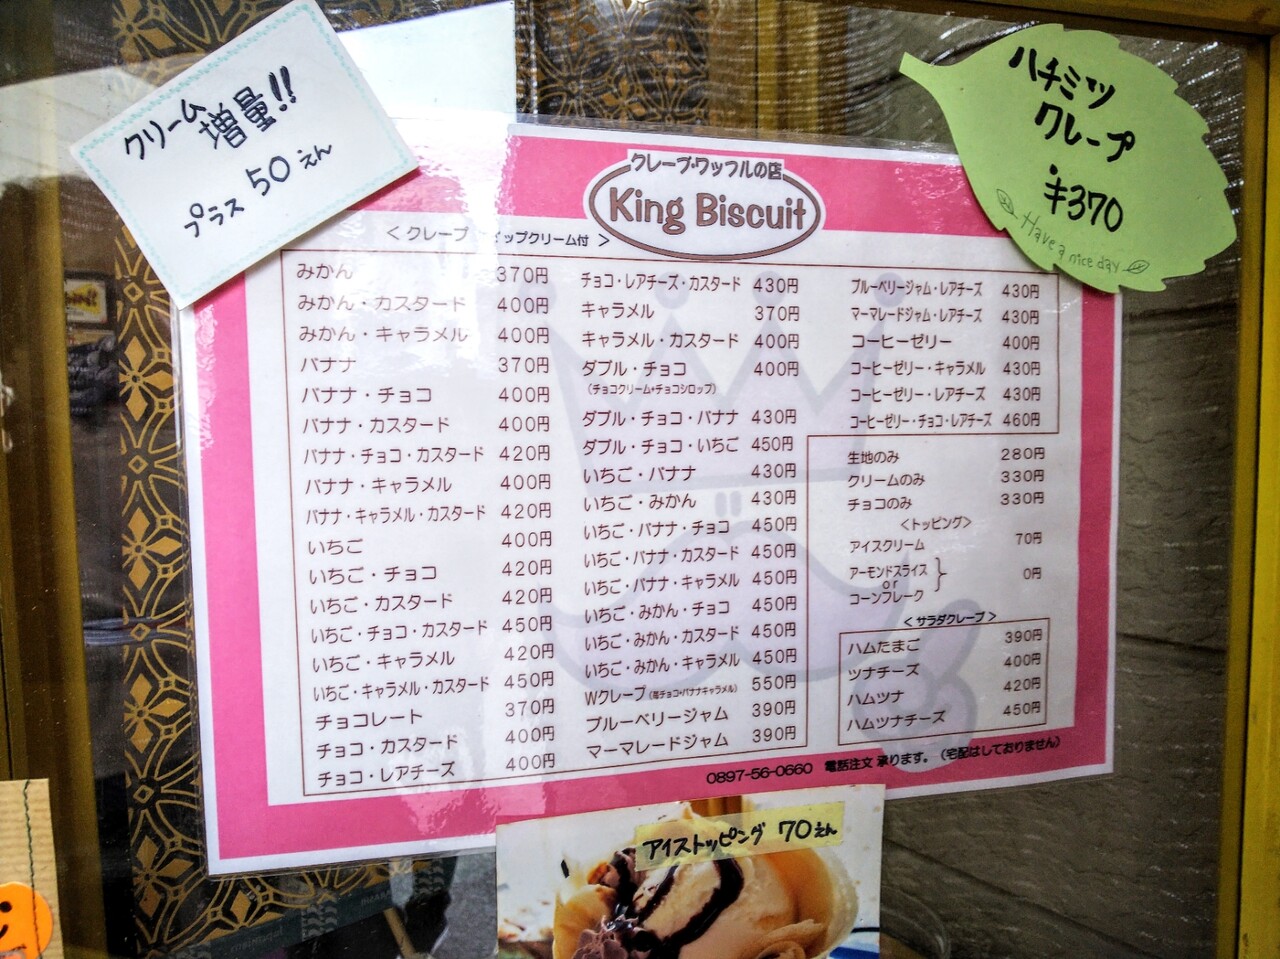 クリーム
増量!!
プラス 50えん
ハチミツ
クレープ
¥370
Have a nice day
クレープ・ワッフルの店
King Biscuit
<クレープ ップクリーム付 >
みかん 370円
みかん・カスタード 400円
みかん・キャラメル 400円
バナナ 370円
バナナ・チョコ 400円
バナナ・カスタード 400円
バナナ・チョコ・カスタード 420円
バナナ・キャラメル 400円
バナナ・キャラメル・カスタード 420円
いちご 400円
いちご・チョコ 420円
いちご・カスタード 420円
いちご・チョコ・カスタード 450円
いちご・キャラメル 420円
いちご・キャラメル・カスタード 450円
チョコレート 370円
チョコ・カスタード 400円
チョコ・レアチーズ 400円
チョコ・レアチーズ・カスタード 430円
キャラメル 370円
キャラメル・カスタード 400円
ダブル・チョコ 400円
(チョコクリーム・チョコシロップ)
ダブル・チョコ・バナナ 430円
ダブル・チョコ・いちご 450円
いちご・バナナ 430円
いちご・みかん 430円
いちご・バナナ・チョコ 450円
いちご・バナナ・カスタード 450円
いちご・バナナ・キャラメル 450円
いちご・みかん・チョコ 450円
いちご・みかん・カスタード 450円
いちご・みかん・キャラメル 450円
Wクレープ(苺チョコ・バナナキャラメル) 550円
ブルーベリージャム 390円
マーマレードジャム 390円
ブルーベリージャム・レアチーズ 430円
マーマレードジャム・レアチーズ 430円
コーヒーゼリー 400円
コーヒーゼリー・キャラメル 430円
コーヒーゼリー・レアチーズ 430円
コーヒーゼリー・チョコ・レアチーズ 460円
生地のみ 280円
クリームのみ 330円
チョコのみ 330円
<トッピング>
アイスクリーム 70円
アーモンドスライス
or
コーンフレーク
0円
<サラダクレープ>
ハムたまご 390円
ツナチーズ 400円
ハムツナ 420円
ハムツナチーズ 450円
0897-56-0660 電話注文 承ります。(宅配はしておりません)
アイストッピング 70えん